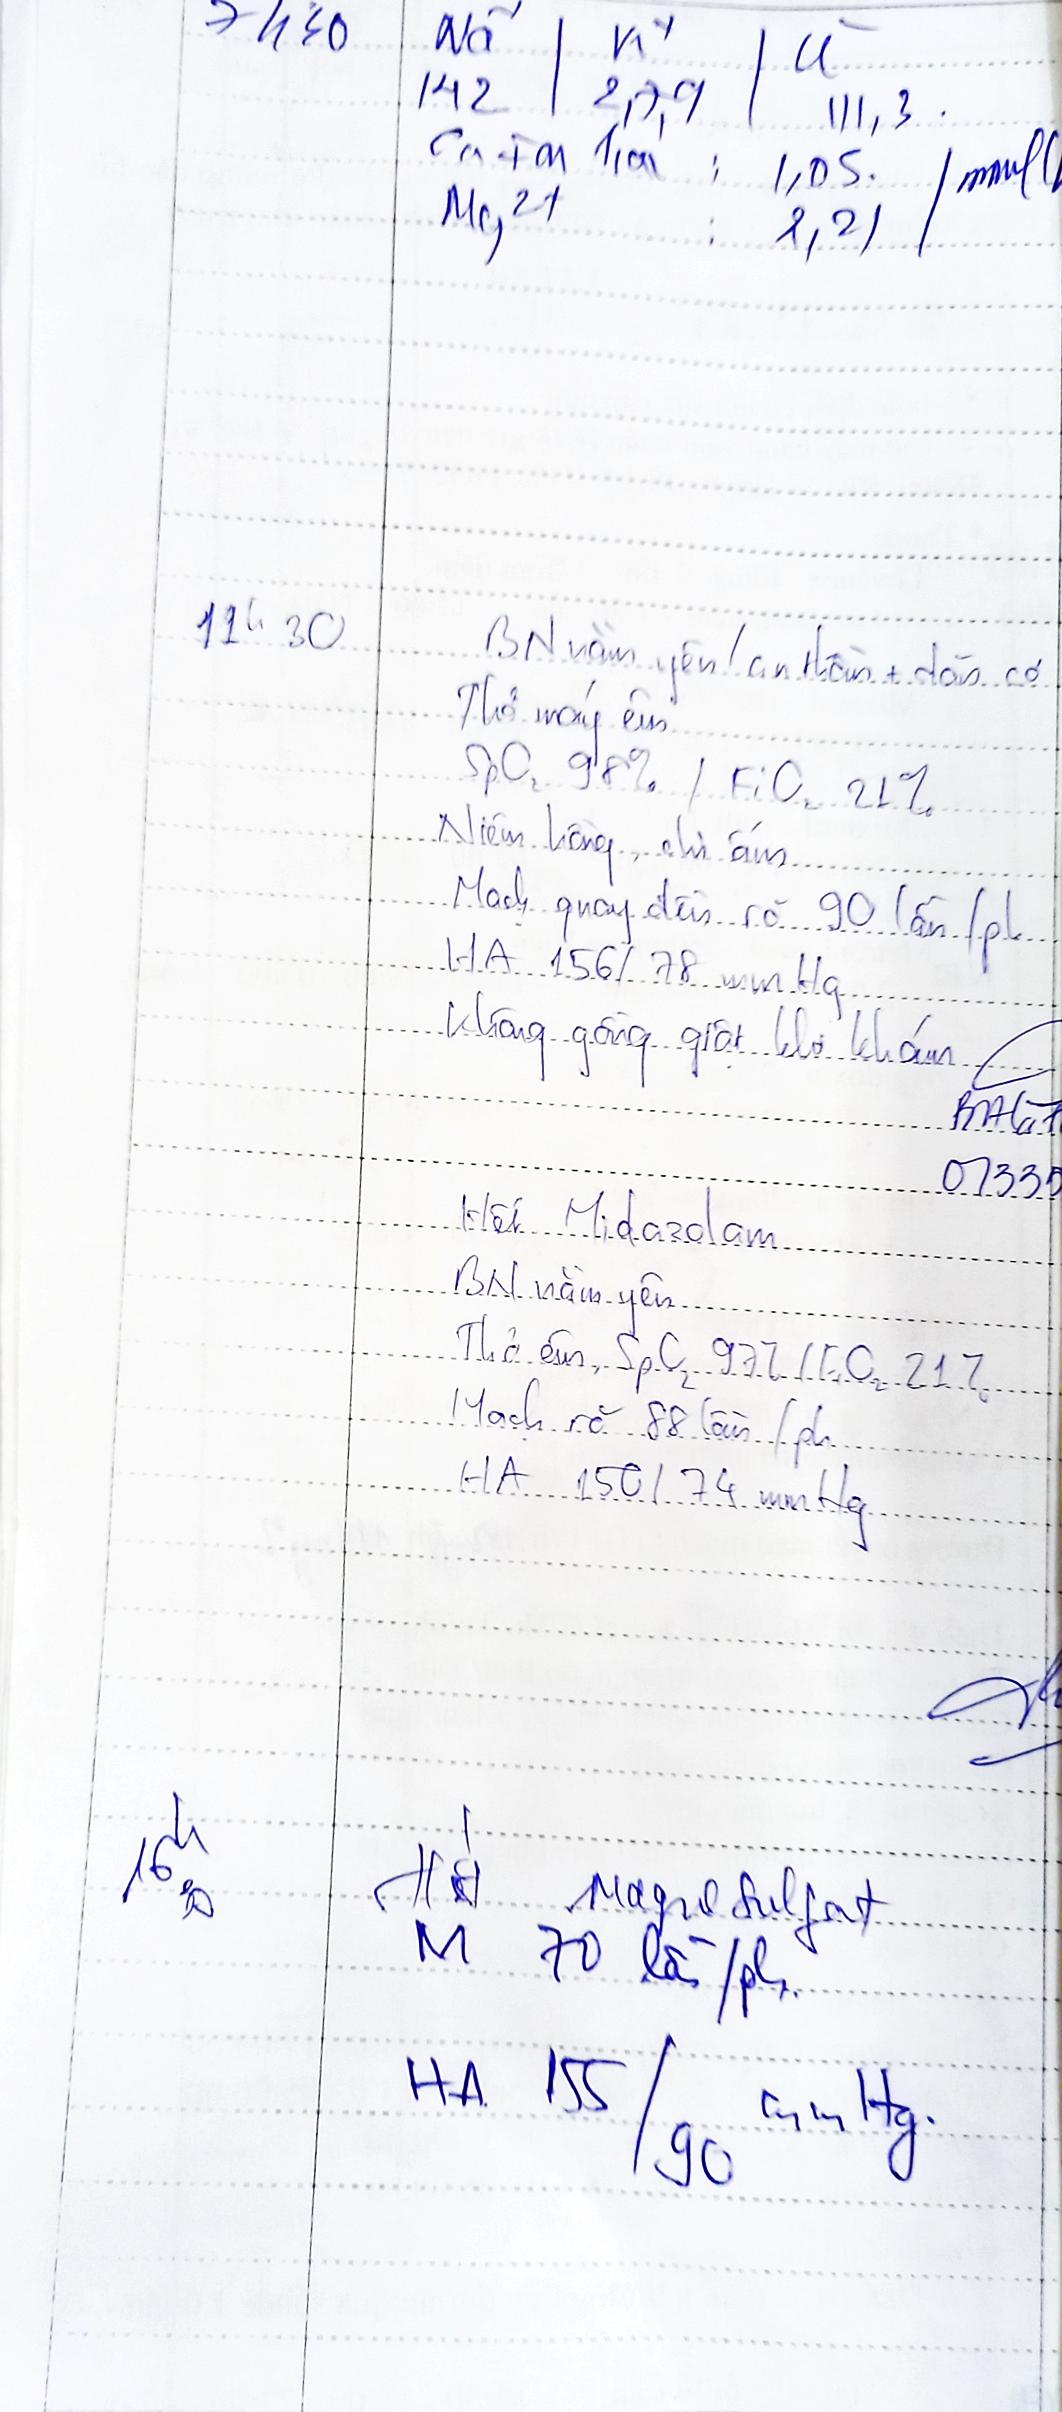 7h30 Na⁺ / K⁺ / Cl⁻
142 / 2,79 / 111,3
Ca ion hóa : 1,05 / mmol/
Mg²⁺ : 2,21
11h30 BN nằm yên / an thần + dãn cơ
Thở máy êm
SpO₂ 98% / FiO₂ 21%
Niêm hồng, chi ấm
Mạch quay đều rõ 90 lần/ph
HA 156/78 mmHg
Không gồng giật khi khám
0733
Hết Midazolam
BN nằm yên
Thở êm, SpO₂ 97% / FiO₂ 21%
Mạch rõ 88 lần/ph
HA 150/74 mmHg
16h30 Hết Magne Sulfat
M 70 lần/ph.
HA 155/90 mmHg.